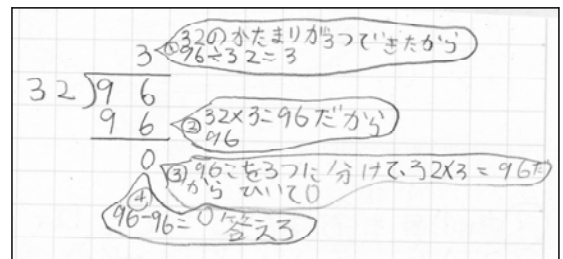 3 ①32のかたまりが3つできたから
96÷32=3
32)96
96 ②32×3=96だから
96
0 ③96こを3つに分けて、32×3=96だ
から ひいて0
④
96-96=0 答え3